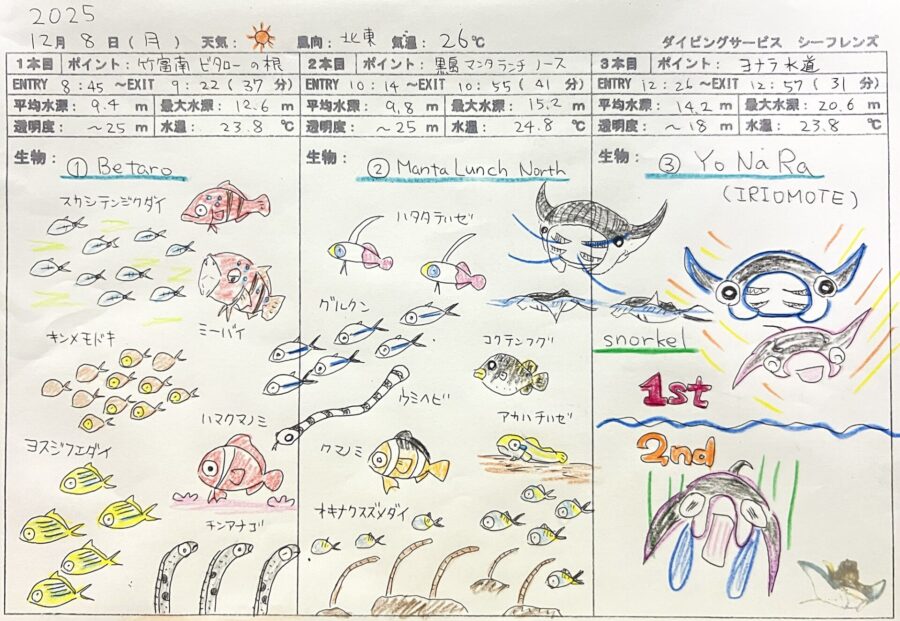 2025
12月 8日(月) 天気: 風向: 北東 気温: 26℃ ダイビングサービス シーフレンズ
1本目 ポイント: 竹富南 ビタローの根
ENTRY 8:45 ~EXIT 9:22 (37 分)
平均水深: 9.4 m 最大水深: 12.6 m
透明度: ~25 m 水温: 23.8 ℃
生物: ① Betaro
スカシテンジクダイ
ミーバイ
キンメモドキ
ハマクマノミ
ヨスジフエダイ
チンアナゴ
2本目 ポイント: 黒島 マンタランチ ノース
ENTRY 10:14 ~EXIT 10:55 (41 分)
平均水深: 9.8 m 最大水深: 15.2 m
透明度: ~25 m 水温: 24.8 ℃
生物: ② Manta Lunch North
ハタタテハゼ
グルクン
コクテンフグ
ウミヘビ
アカハチハゼ
クマノミ
オキナワスズメダイ
3本目 ポイント: ヨナラ水道
ENTRY 12:26 ~EXIT 12:57 (31 分)
平均水深: 14.2 m 最大水深: 20.6 m
透明度: ~18 m 水温: 23.8 ℃
生物: ③ YoNaRa
(IRIOMOTE)
snorkel
1st
2nd